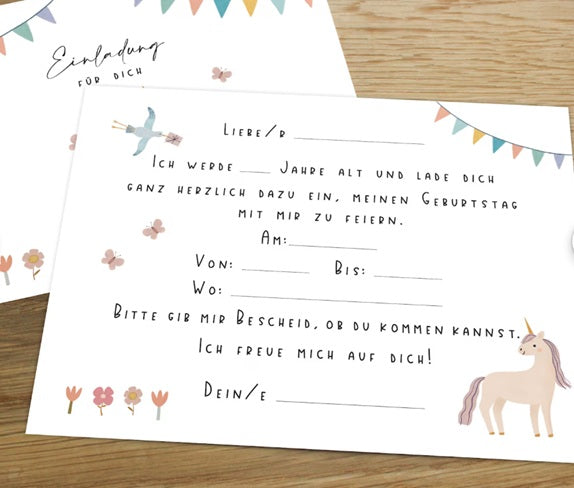 Einladung
FÜR DICH
LIEBE/R
ICH WERDE ___ JAHRE ALT UND LADE DICH
GANZ HERZLICH DAZU EIN, MEINEN GEBURTSTAG
MIT MIR ZU FEIERN.
AM:
VON: ___ BIS:
WO:
BITTE GIB MIR BESCHEID, OB DU KOMMEN KANNST.
ICH FREUE MICH AUF DICH!
DEIN/E